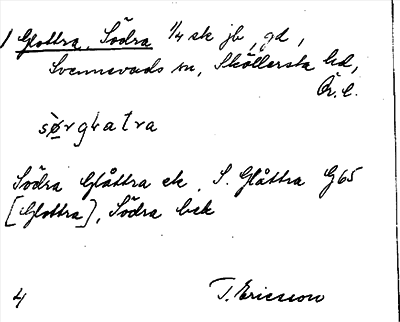 Glottra, Södra 1/4 sk jb, gd,
Svennevads sn, Sköllersta hd,
Ör. l.
Södra Glåttra ek, S. Glåttra G65
[Glottra], Södra bsk
4 T. Ericsson